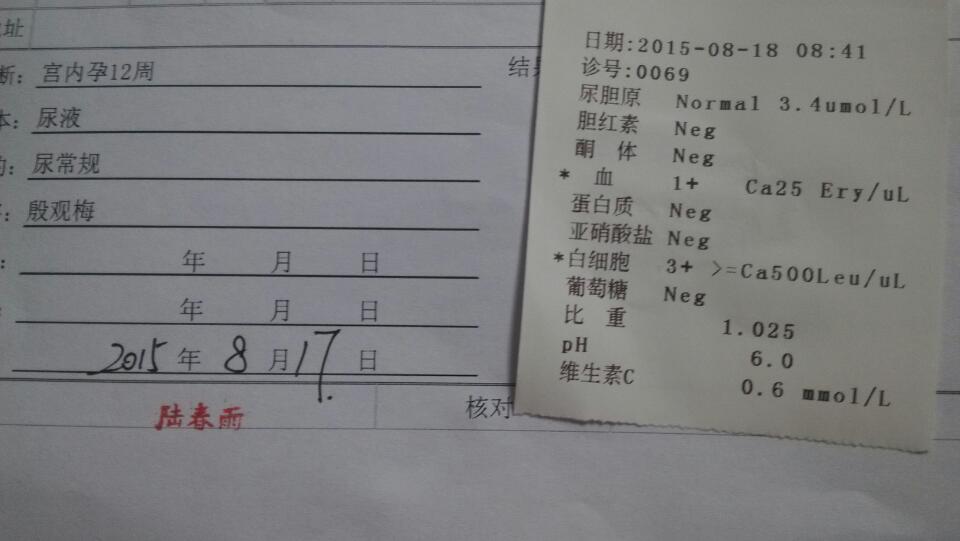 址
断: 宫内孕12周
结果
本: 尿液
的: 尿常规
: 殷观梅
: 年 月 日
: 年 月 日
2015 年 8 月 17 日
陆春雨
核对
日期:2015-08-18 08:41
诊号:0069
尿胆原 Normal 3.4umol/L
胆红素 Neg
酮 体 Neg
* 血 1+ Ca25 Ery/uL
蛋白质 Neg
亚硝酸盐 Neg
*白细胞 3+ >=Ca500Leu/uL
葡萄糖 Neg
比 重 1.025
pH 6.0
维生素C 0.6 mmol/L